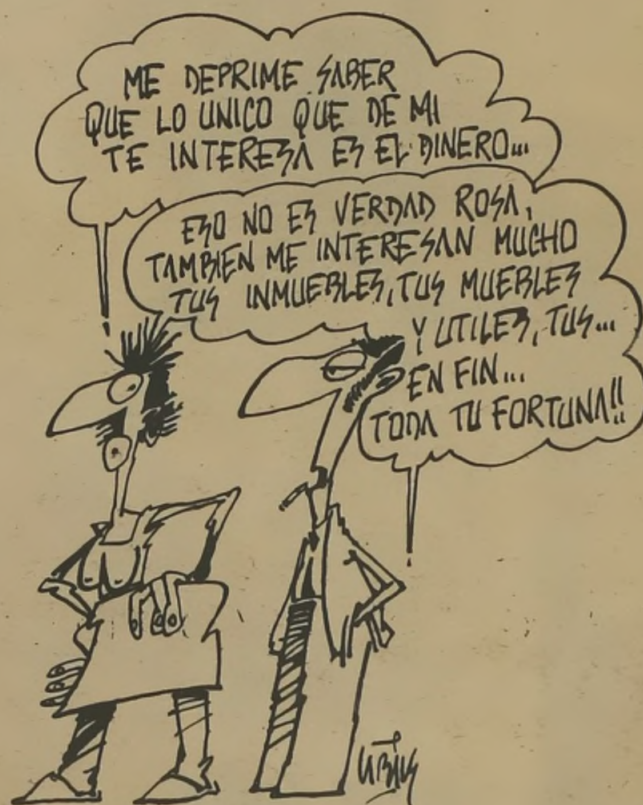 ME DEPRIME SABER
QUE LO UNICO QUE DE MI
TE INTERESA ES EL DINERO...
ESO NO ES VERDAD ROSA,
TAMBIEN ME INTERESAN MUCHO
TUS INMUEBLES, TUS MUEBLES
Y UTILES, TUS...
EN FIN...
TODA TU FORTUNA!!